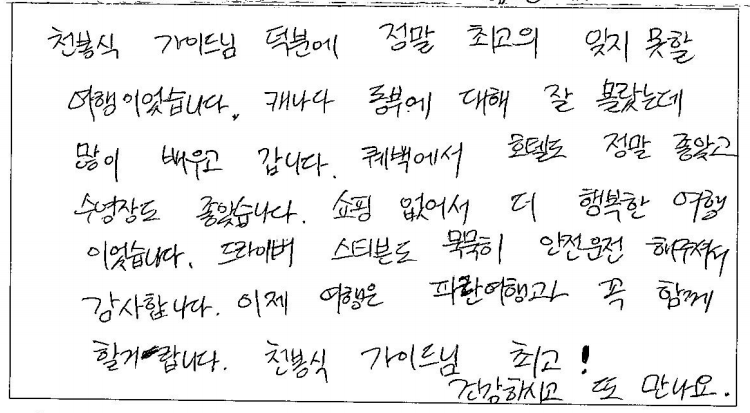 천봉식 가이드님 덕분에 정말 최고의 잊지 못할
여행이었습니다. 캐나다 동부에 대해 잘 몰랐는데
많이 배우고 갑니다. 퀘백에서 호텔도 정말 좋았고
수영장도 좋았습니다. 쇼핑 없어서 더 행복한 여행
이었습니다. 드라이버 스티븐도 묵묵히 안전운전 해주셔서
감사합니다. 이제 여행은 파란여행과 꼭 함께
할거랍니다. 천봉식 가이드님 최고!
건강하시고 또 만나요.